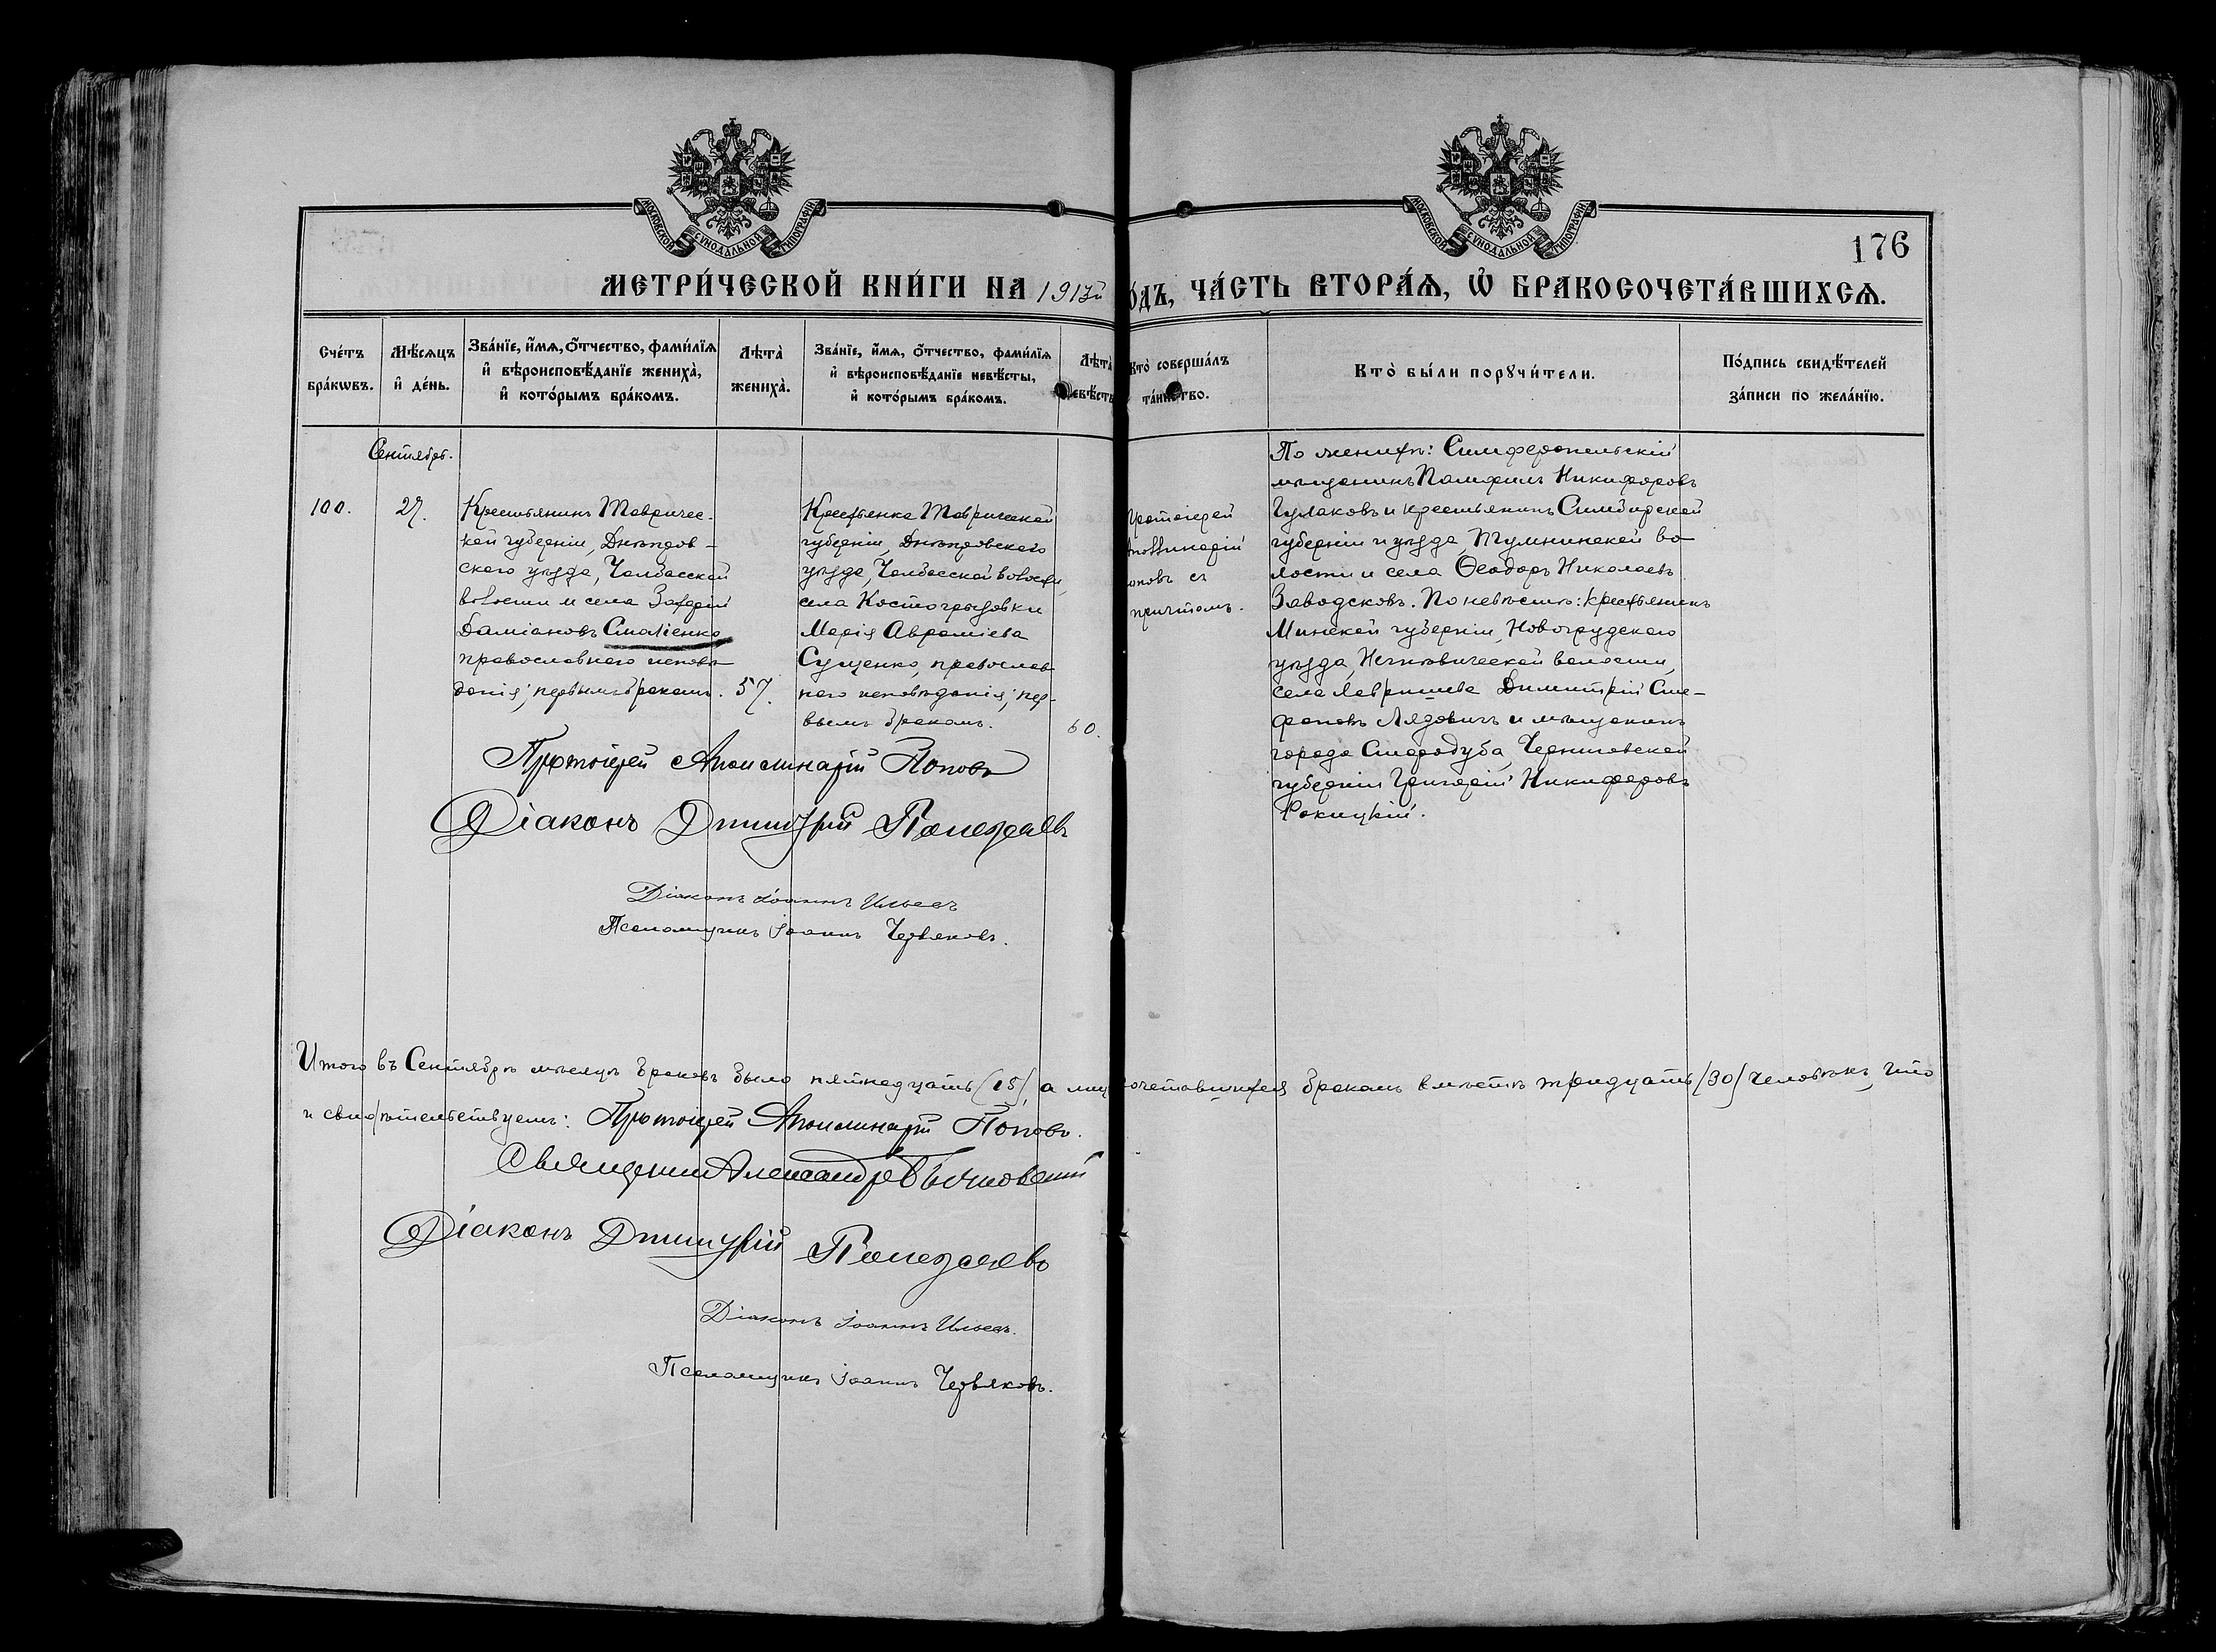 МОСКОВСКОЙ СѴНОДАЛЬНОЙ ТИПОГРАФІИ
МОСКОВСКОЙ СѴНОДАЛЬНОЙ ТИПОГРАФІИ
176
МЕТРИ́ЧЕСКОЙ КНИ́ГИ НА 1913й
ОДЪ, ЧА́СТЬ ВТОРА́Ѧ, Ѽ БРАКОСОЧЕТА́ВШИХСѦ.
Сче́тъ бра́кѡвъ.
Мѣ́сѧцъ и҆ де́нь.
Зва́нїе, и҆́мѧ, ѻ҆́тчество, фами́лїѧ
и҆ вѣроисповѣ́данїе жениха̀,
и҆ кото́рымъ бра́комъ.
Лѣта̀ жениха̀.
Зва́нїе, и҆́мѧ, ѻ҆́тчество, фами́лїѧ
и҆ вѣроисповѣ́данїе невѣ́сты,
и҆ кото́рымъ бра́комъ.
Лѣта̀
евѣ́сты
Кто̀ соверша́лъ
та́инство.
Кто̀ бы́ли порꙋчи́тели.
По́дпись свидѣ́телей
за́писи по жела́нїю.
Сентябрь.
100.
27.
Крестьянинъ Тавричес-
кой губерніи, Днѣпров-
скаго уѣзда, Чалбасской
волости и села Захарій
Даміановъ Смаліенко
православнаго исповѣ-
данія; первымъ бракомъ.
57.
Крестьянка Таврической
губерніи, Днѣпровскаго
уѣзда, Чалбасской волости,
села Костогрызовки
Марія Авраміева
Сущенко, православ-
наго исповѣданія; пер-
вымъ бракомъ.
60.
Протоіерей
Аполлинарій
оповъ съ
причтомъ.
По женихѣ: Симферопольскій
мѣщанинъ Памфилъ Никифоровъ
Гулаковъ и крестьянинъ Симбирской
губерніи и уѣзда, Тумнинской во-
лости и села Ѳеодоръ Николаевъ
Заводсковъ. По невѣстѣ: крестьянинъ
Минской губерніи, Новогрудскаго
уѣзда, Негнѣвической волости,
села Лавришева Димитрій Сте-
фановъ Лядовичъ и мѣщанинъ
города Стародуба, Черниговской
губерніи Григорій Никифоровъ
Рокицкій.
Протоіерей Аполлинарій Поповъ
Діаконъ Дмитрій Полежаевъ
Діаконъ Іоаннъ Ильевъ
Псаломщикъ Іоаннъ Червяковъ.
Итого въ Сентябрѣ мѣсяцѣ браковъ было пятнадцать (15), а лиц сочетавшихся бракомъ вмѣстѣ тридцать (30) человѣкъ, что
и свидѣтельствуемъ: Протоіерей Аполлинарій Поповъ.
Священникъ Александръ
Діаконъ Дмитрій Полежаевъ
Діаконъ Іоаннъ Ильевъ.
Псаломщикъ Іоаннъ Червяковъ.